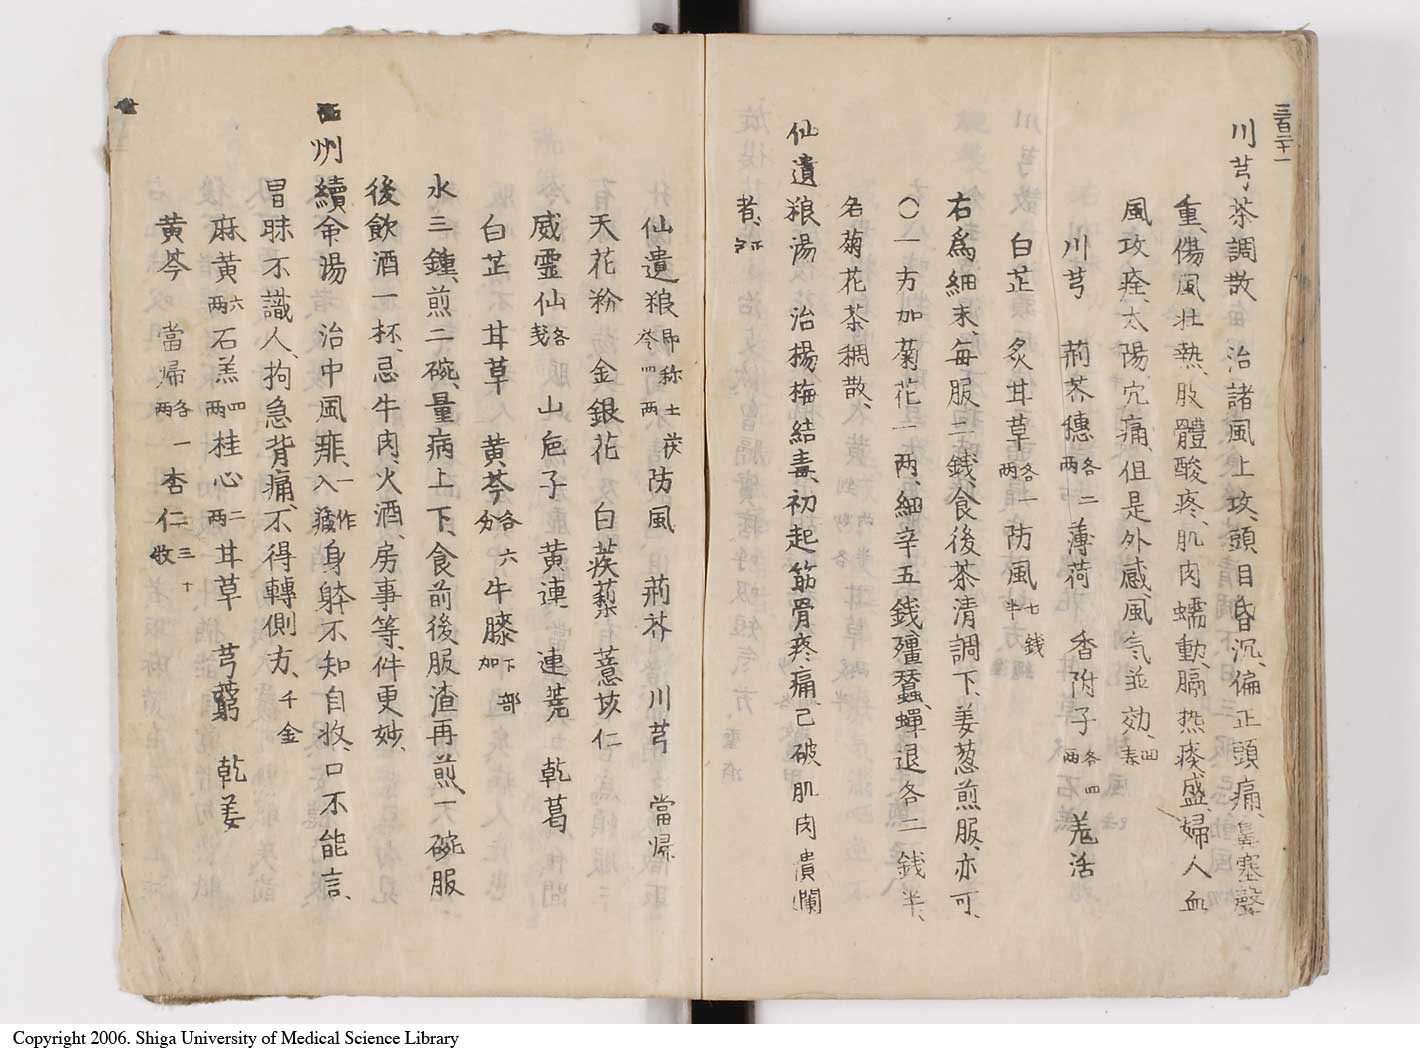 三百二十一
川芎茶調散 治諸風上攻、頭目昏沉、偏正頭痛、鼻塞聲
重、傷風壯熱、肢體酸疼、肌肉蠕動、膈热痰盛、婦人血
風攻疰、太陽穴痛、但是外感風气並効、
川芎 荊芥穗各二两 薄荷 香附子各四两 羗活
白芷 炙甘草各一两 防風七錢半
右爲細末、毎服二錢食後茶清調下、姜葱煎服、亦可、
○一方加菊花一两、細辛五錢、殭蠶、蟬退各二錢半、
名菊花茶稠散、
仙遺粮湯 治楊梅結毒、初起筋骨疼痛已破肌肉潰爛
者、
仙遺粮即称土茯苓四两 防風 荊芥 川芎 當帰
天花粉 金銀花 白蒺藜 薏苡仁
威霊仙各 山卮子 黄連 連莞 乾葛
白芷 甘草 黄芩各六分 牛膝下部加
水三鍾、煎二碗、量病上下、食前後服渣再煎一六碗服
後飲酒一杯、忌牛肉、火酒、房事等、件更妙、
西州續命湯 治中風、入一作藏 身躰不知自收、口不能言、
冒昧不識人、拘急背痛、不得轉側方、千金
麻黄六两 石羔四两 桂心二两 甘草 芎藭 乾姜
黄芩 當帰各一两 杏仁三十枚